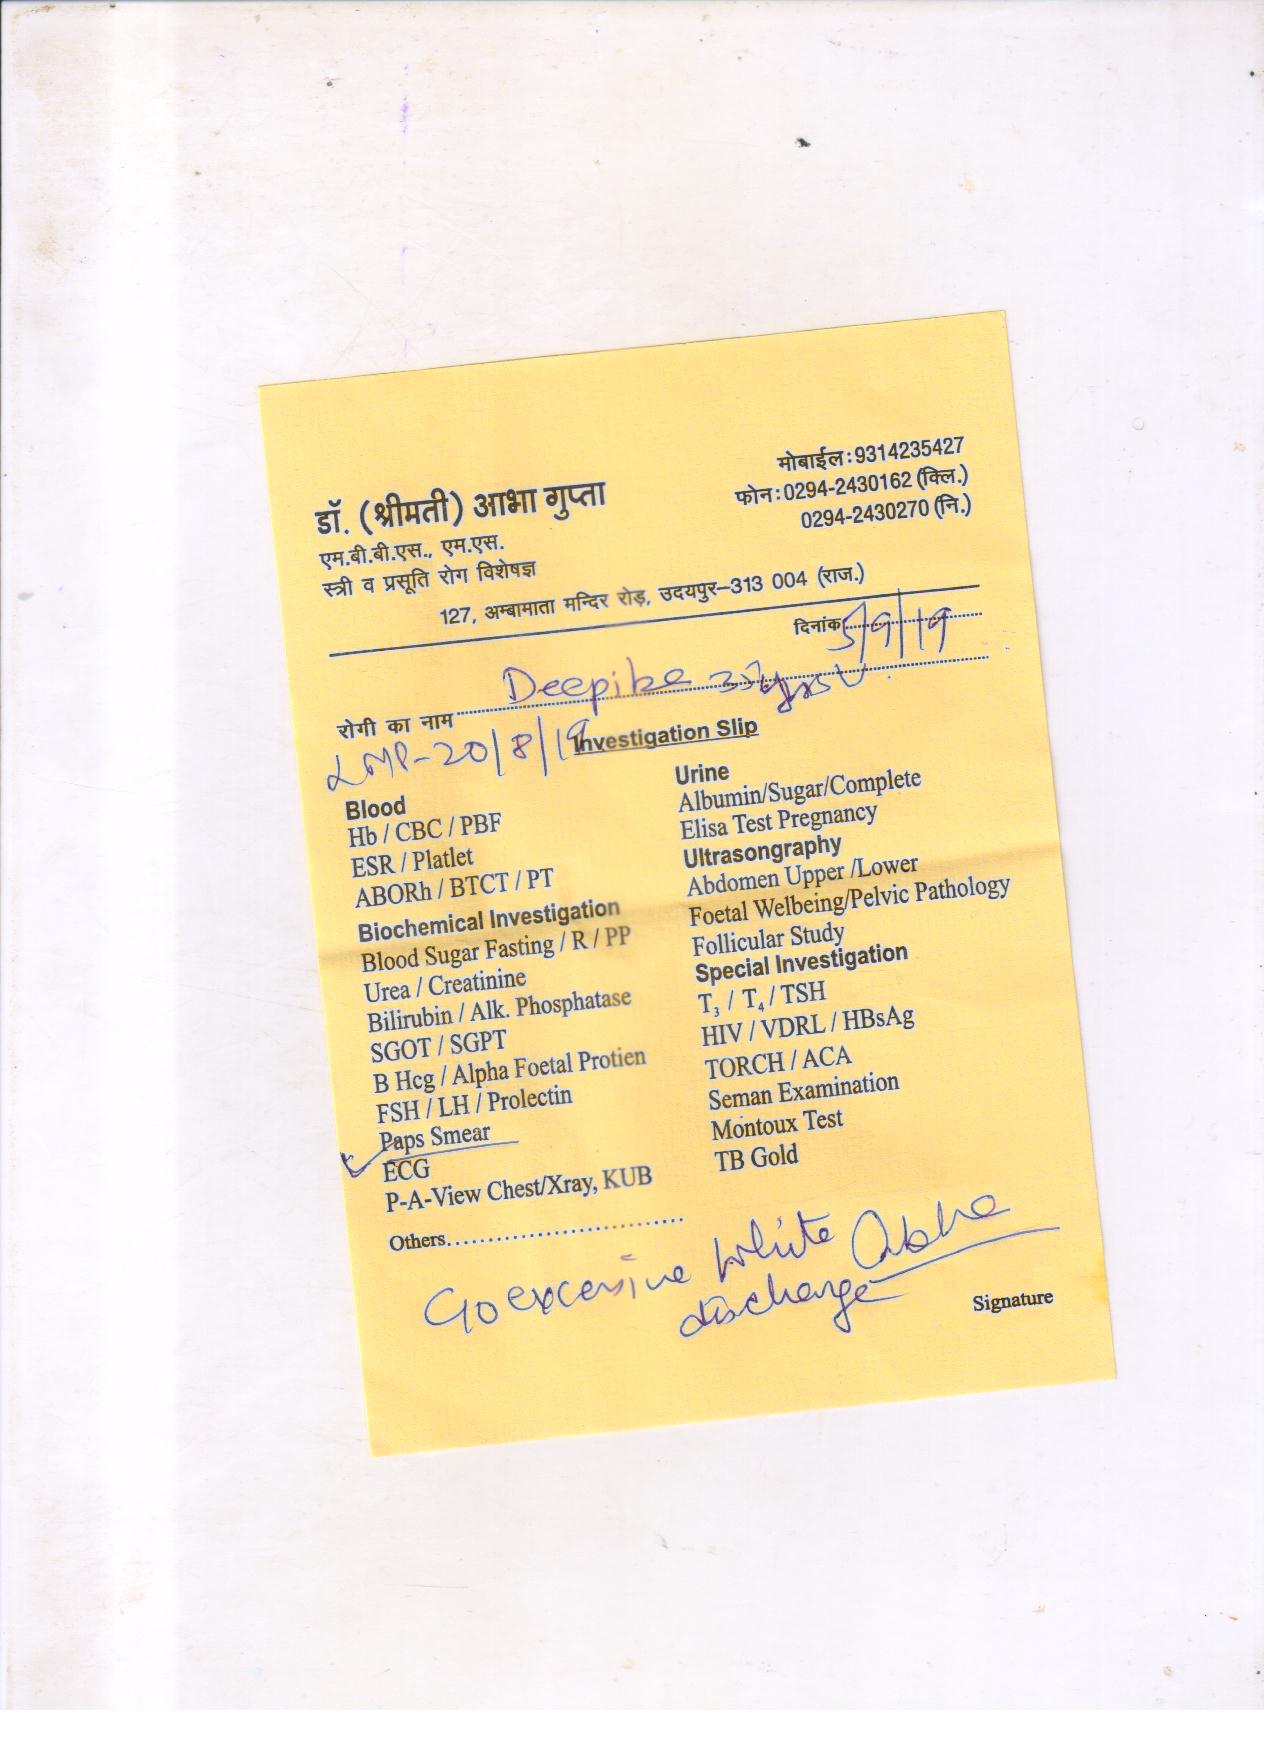 डॉ. (श्रीमती) आभा गुप्ता
एम.बी.बी.एस., एम.एस.
स्त्री व प्रसूति रोग विशेषज्ञ
मोबाईल : 9314235427
फोन : 0294-2430162 (क्लि.)
0294-2430270 (नि.)
127, अम्बामाता मन्दिर रोड़, उदयपुर–313 004 (राज.)
दिनांक 5/9/19
रोगी का नाम Deepika
LMP-20/8/19
Investigation Slip
Blood
Hb / CBC / PBF
ESR / Platlet
ABORh / BTCT / PT
Biochemical Investigation
Blood Sugar Fasting / R / PP
Urea / Creatinine
Bilirubin / Alk. Phosphatase
SGOT / SGPT
B Hcg / Alpha Foetal Protien
FSH / LH / Prolectin
Paps Smear
ECG
P-A-View Chest/Xray, KUB
Others
Urine
Albumin/Sugar/Complete
Elisa Test Pregnancy
Ultrasongraphy
Abdomen Upper /Lower
Foetal Welbeing/Pelvic Pathology
Follicular Study
Special Investigation
T₃ / T₄ / TSH
HIV / VDRL / HBsAg
TORCH / ACA
Seman Examination
Montoux Test
TB Gold
C/o excessive white
discharge
Abha
Signature